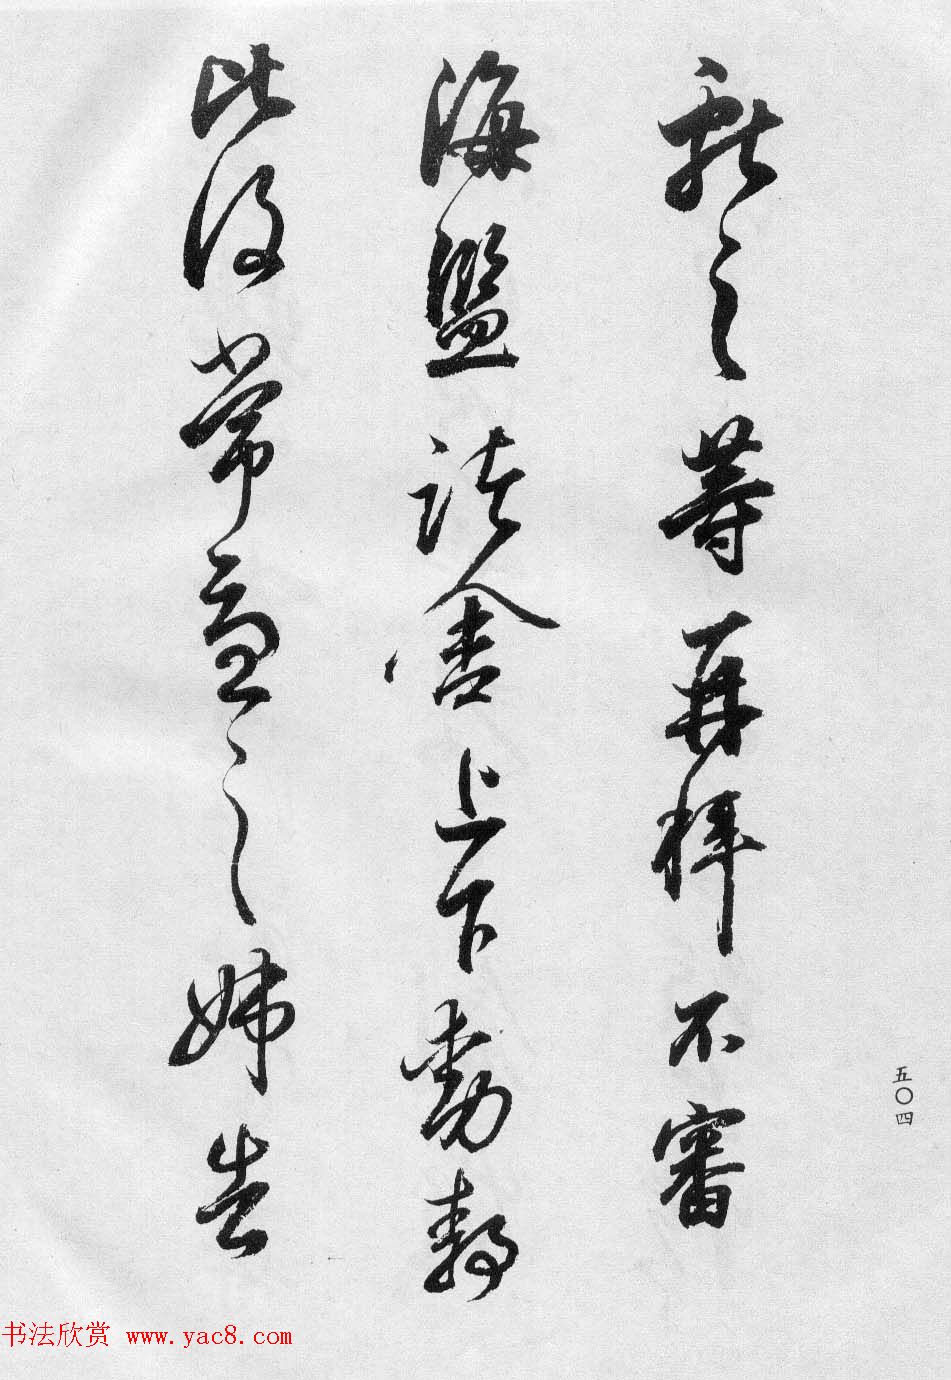 獻之等再拜不審
海鹽諸舍上下動静
比復常憂之姊告
五〇四
书法欣赏 www.yac8.com